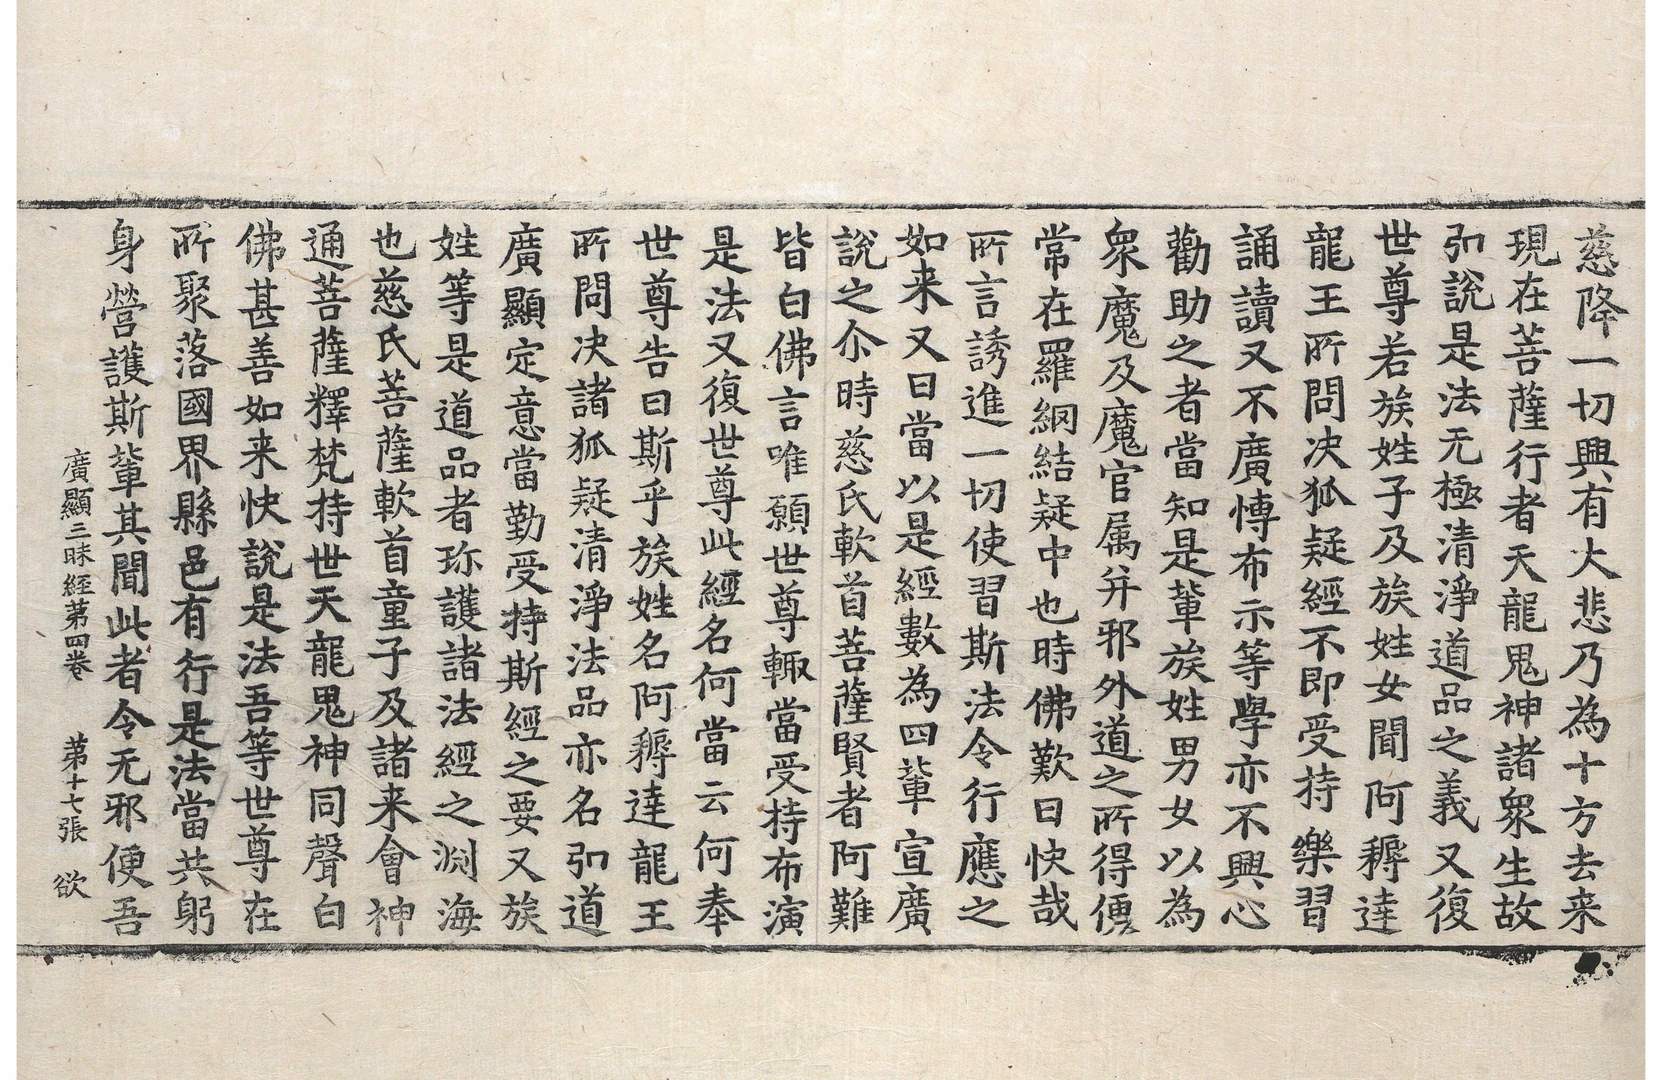 慈降一切興有大悲乃為十方去来
現在菩薩行者天龍鬼神諸衆生故
弘說是法无極清淨道品之義又復
世尊若族姓子及族姓女聞阿耨達
龍王所問决狐疑經不即受持樂習
誦讀又不廣博布示等學亦不興心
勸助之者當知是輩族姓男女以為
衆魔及魔官属并邪外道之所得便
常在羅網結疑中也時佛歎曰快哉
所言誘進一切使習斯法令行應之
如来又曰當以是經數為四輩宣廣
說之尒時慈氏軟首菩薩賢者阿難
皆白佛言唯願世尊輙當受持布演
是法又復世尊此經名何當云何奉
世尊告曰斯乎族姓名阿耨達龍王
所問决諸狐疑清淨法品亦名弘道
廣顯定意當勤受持斯經之要又族
姓等是道品者珎護諸法經之渕海
也慈氏菩薩軟首童子及諸来會神
通菩薩釋梵持世天龍鬼神同聲白
佛甚善如来快說是法吾等世尊在
所聚落國界縣邑有行是法當共躬
身營護斯輩其聞此者令无邪便吾
廣顯三昧經第四卷　第十七張　欲